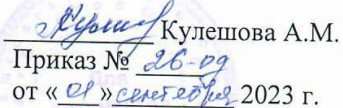 Кулешова А.М.
Приказ № 26-од
от «01» сентября 2023 г.